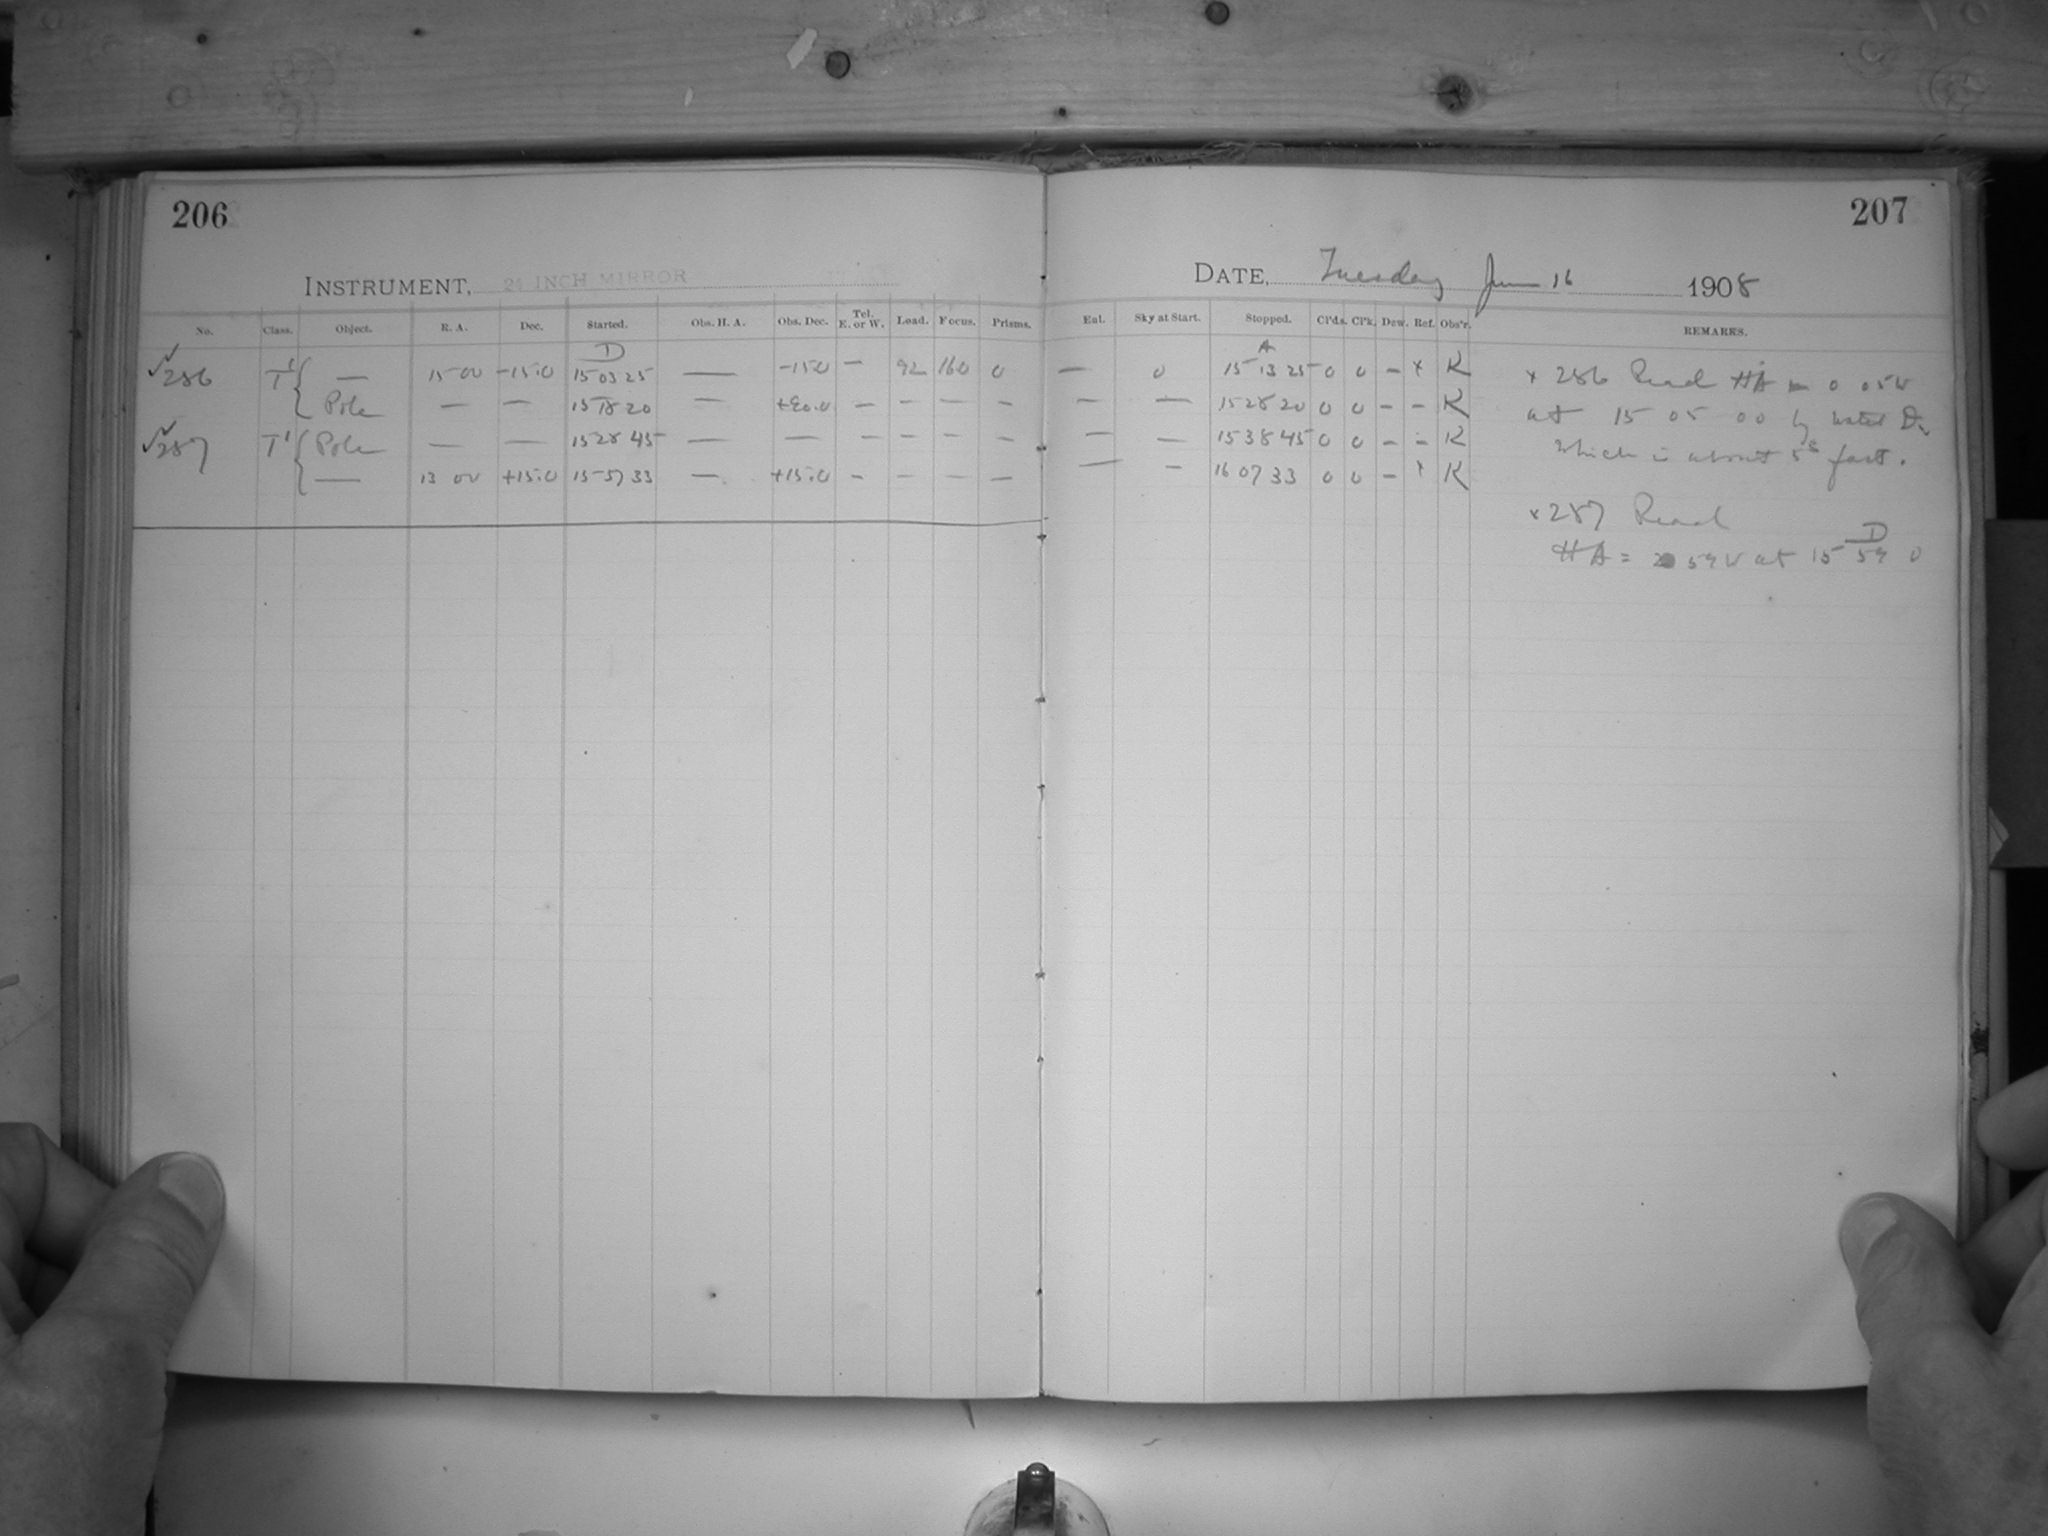 206
INSTRUMENT, 24 INCH MIRROR
No. Class. Object. R. A. Dec. Started. Obs. H. A. Obs. Dec. Tel. E. or W. Load. Focus. Prisms.
D
√286 T' — 15 00 -15.0 15 03 25 — -15.0 — 92 16.0 0
Pole — — 15 18 20 — +90.0 — — — —
√287 T' Pole — — 15 28 45 — — — — — —
— 13 00 +15.0 15 57 33 — +15.0 — — — —
207
DATE, Tuesday June 16 1908
Eat. Sky at Start. Stopped. Cl'ds. Cl'k. Dew. Ref. Obs'r. REMARKS.
A
— 0 15 13 25 0 0 — x K
— — 15 28 20 0 0 — — K
— — 15 38 45 0 0 — — K
— — 16 07 33 0 0 — x K
x 286 Read HA = 0 05W
at 15 05 00 by
which is about 5s fast.
x 287 Read
D
HA = 59 W at 15 59 0